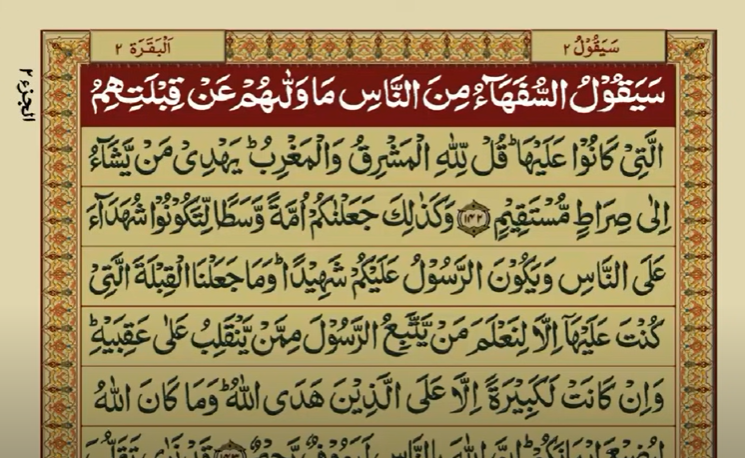 الْبَقَرَة ٢
سَيَقُوْلُ ٢
الجزء ٢
سَيَقُوْلُ السُّفَهَآءُ مِنَ النَّاسِ مَا وَلّٰىهُمْ عَنْ قِبْلَتِهِمُ
الَّتِىْ كَانُوْا عَلَيْهَا ؕ قُلْ لِّلّٰهِ الْمَشْرِقُ وَالْمَغْرِبُ ؕ يَهْدِىْ مَنْ يَّشَآءُ
اِلٰى صِرَاطٍ مُّسْتَقِيْمٍ ﴿۱۴۲﴾ وَكَذٰلِكَ جَعَلْنٰكُمْ اُمَّةً وَّسَطًا لِّتَكُوْنُوْا شُهَدَآءَ
عَلَى النَّاسِ وَيَكُوْنَ الرَّسُوْلُ عَلَيْكُمْ شَهِيْدًا ؕ وَمَا جَعَلْنَا الْقِبْلَةَ الَّتِىْ
كُنْتَ عَلَيْهَآ اِلَّا لِنَعْلَمَ مَنْ يَّتَّبِعُ الرَّسُوْلَ مِمَّنْ يَّنْقَلِبُ عَلٰى عَقِبَيْهِ ؕ
وَاِنْ كَانَتْ لَكَبِيْرَةً اِلَّا عَلَى الَّذِيْنَ هَدَى اللّٰهُ ؕ وَمَا كَانَ اللّٰهُ
لِيُضِيْعَ اِيْمَانَكُمْ ؕ اِنَّ اللّٰهَ بِالنَّاسِ لَرَءُوْفٌ رَّحِيْمٌ ﴿۱۴۳﴾ قَدْ نَرٰى تَقَلُّبَ